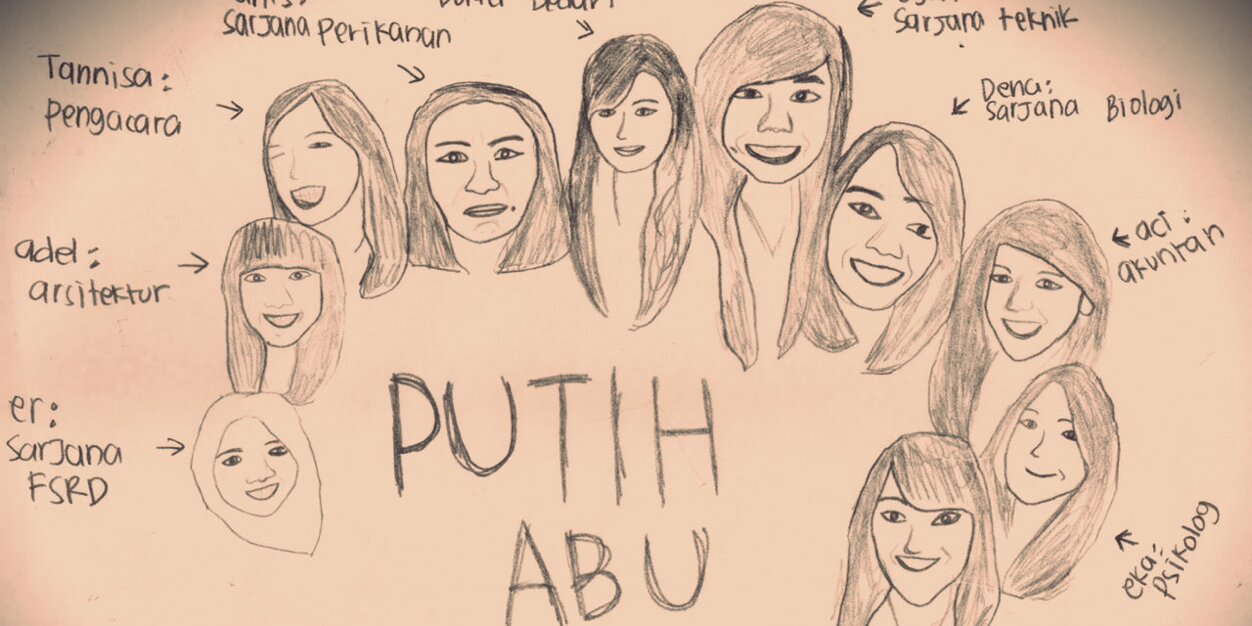 sarjana perikanan
sarjana teknik
Tannisa:
pengacara
Dena:
sarjana Biologi
aci:
akuntan
adel:
arsitektur
er:
sarjana
FSRD
PUTIH
ABU
eka:
psikolog